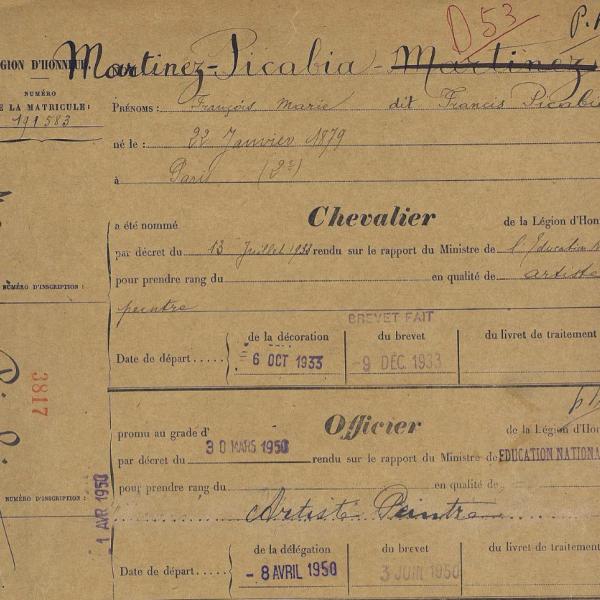 D53
P.
GION D'HONNEUR.
Martinez-Picabia - Martinez
NUMÉRO
E LA MATRICULE:
191583
PRÉNOMS: François Marie dit Francis Picabia
né le: 22 Janvier 1879
à Paris (2e)
a été nommé Chevalier de la Légion d'Hon
par décret du 13 Juillet 1933 rendu sur le rapport du Ministre de l'Education N
pour prendre rang du en qualité de artiste
peintre
NUMÉRO D'INSCRIPTION:
BREVET FAIT
de la décoration du brevet du livret de traitement
Date de départ..... 6 OCT 1933 -9 DÉC. 1933
3817
promu au grade d' Officier de la Légion d'Hon
par décret du 30 MARS 1950 rendu sur le rapport du Ministre de EDUCATION NATIONA
pour prendre rang du en qualité de
Artiste Peintre
NUMÉRO D'INSCRIPTION:
1 AVR 1950
de la délégation du brevet du livret de traitement
Date de départ..... - 8 AVRIL 1950 3 JUIN 1950